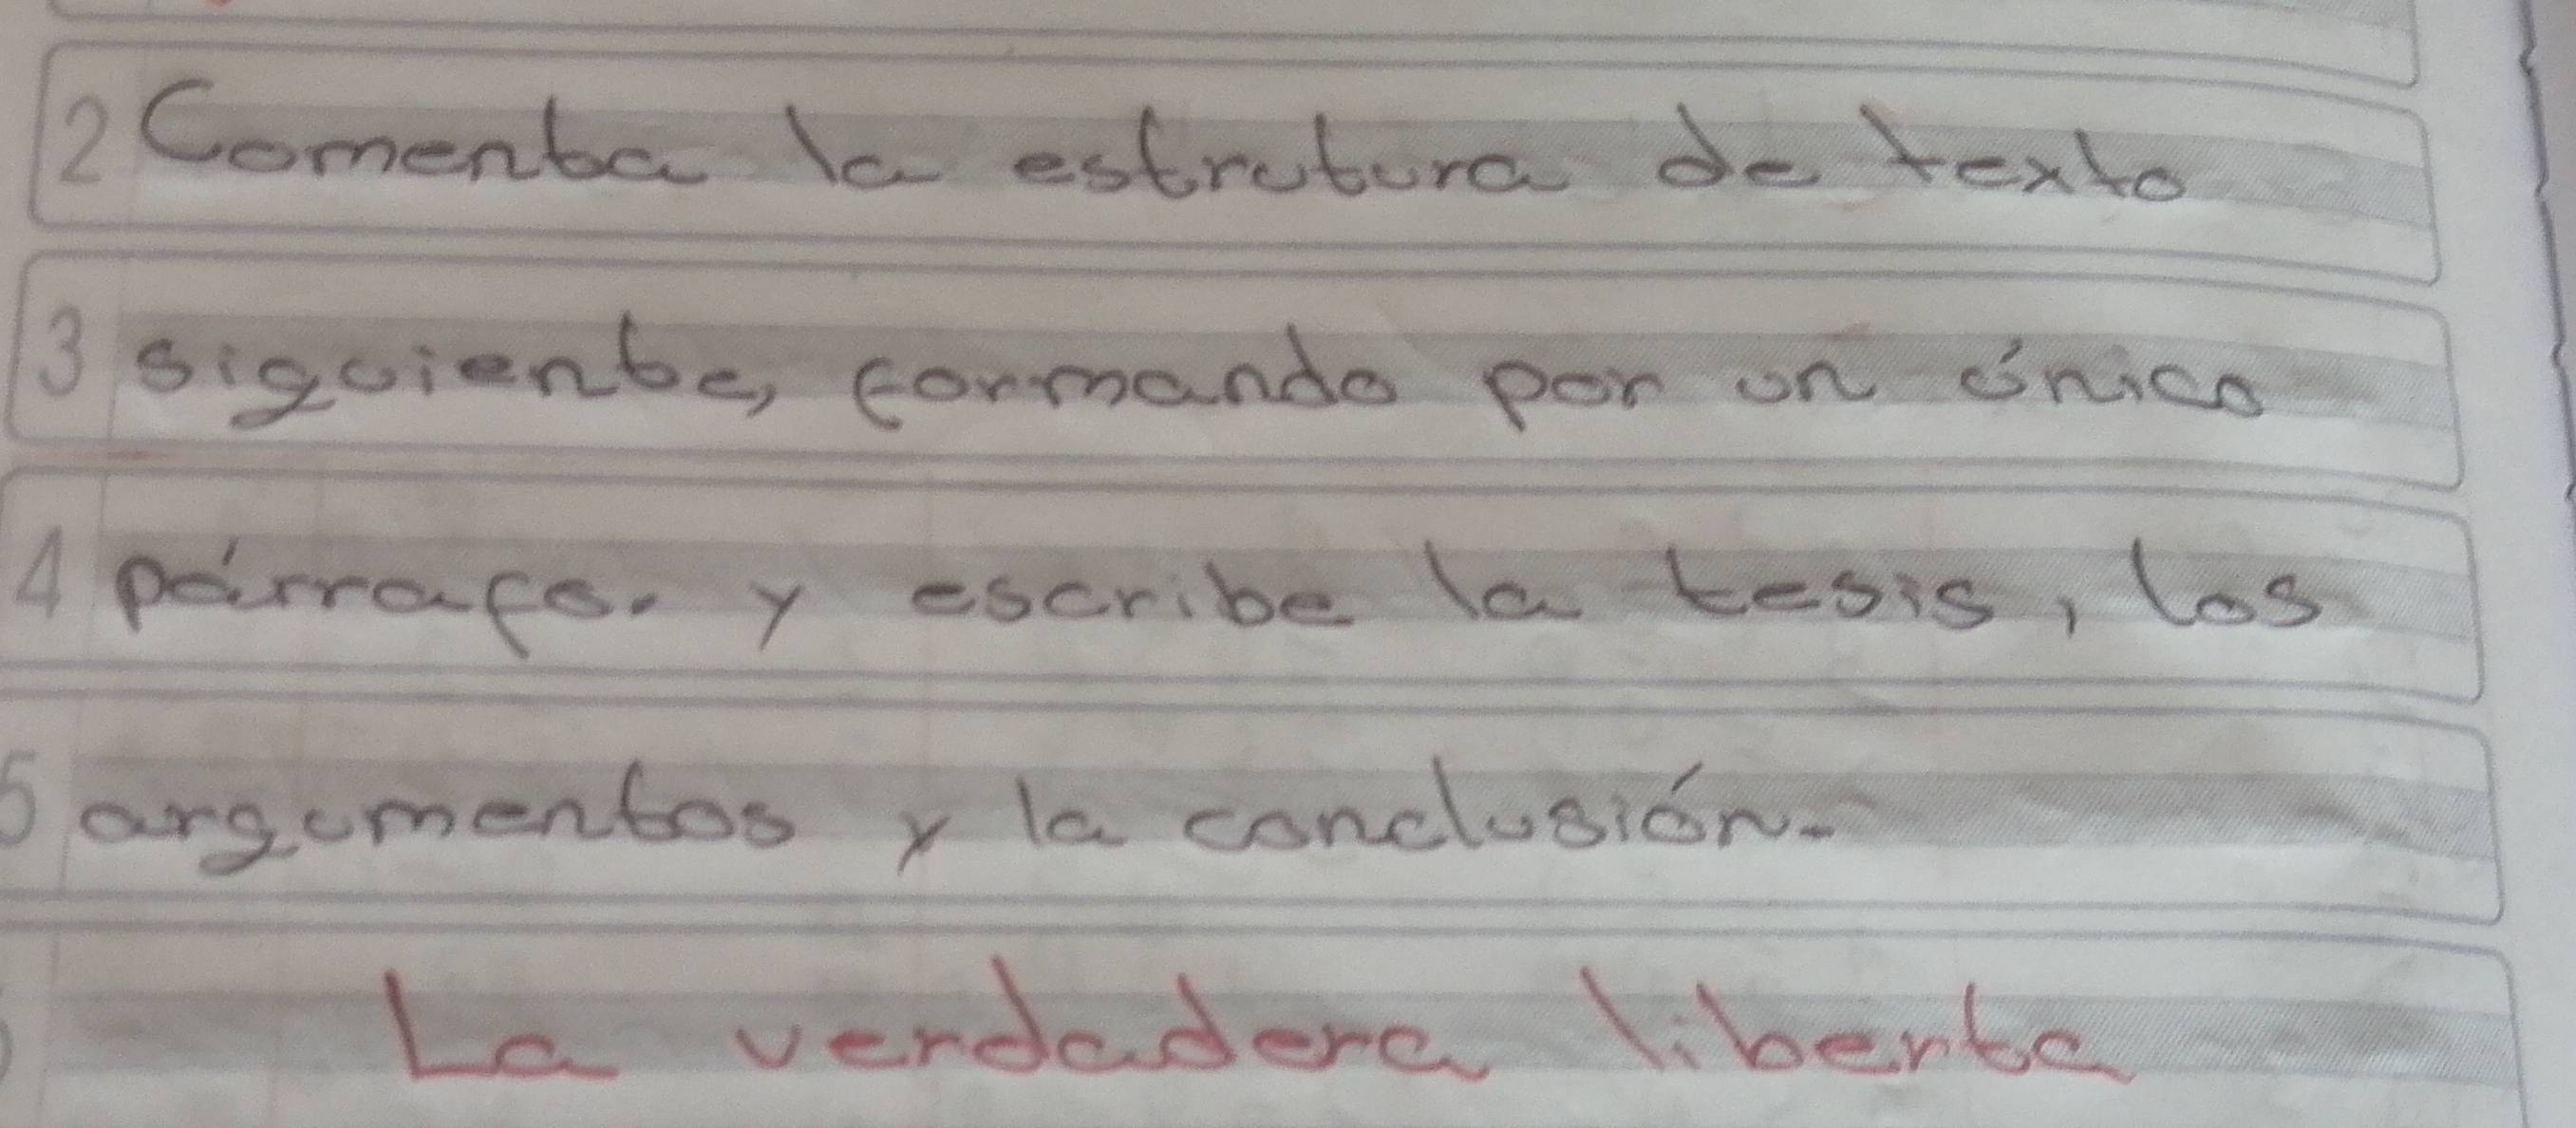 2 Comenta la estrutura de texto
3 siguiente, formando por un único
4 párrafo. y escribe la tesis, los
5 argumentos y la conclusión.
La verdadera liberta